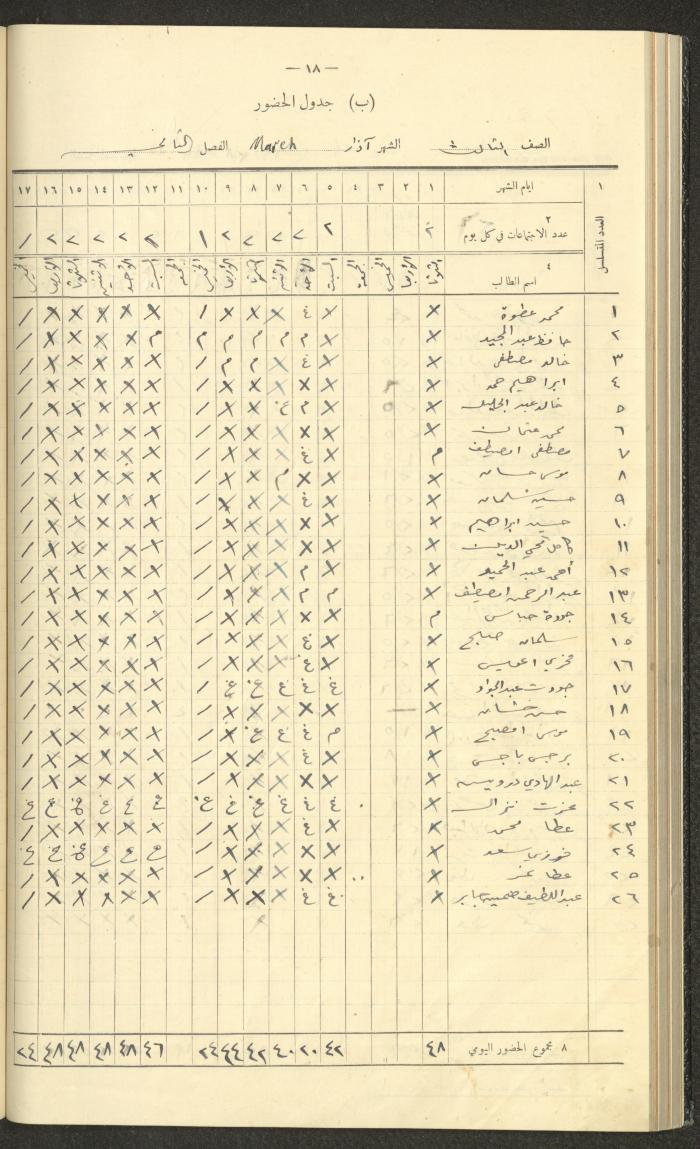 — ١٨ —
(ب) جدول الحضور
الصف الثالث الشهر آذار March الفصل الثاني
١ ايام الشهر ١ ٢ ٣ ٤ ٥ ٦ ٧ ٨ ٩ ١٠ ١١ ١٢ ١٣ ١٤ ١٥ ١٦ ١٧
العدد المتسلسل
٢ عدد الاجتماعات في كل يوم ٢ ٢ ٢ ٢ ٢ ٢ ١ ٢ ٢ ٢ ٢ ٢ ١
٤ اسم الطالب الثلاثا الأربعا الخميس الجمعة السبت الأحد الاثنين الثلاثا الأربعا الخميس الجمعة السبت الأحد الاثنين الثلاثا الأربعا الخميس
١ محمد عطوة x x غ x x x / x x x x x /
٢ حافظ عبد المجيد x x م م م م م م x x x x /
٣ خالد مصطفى x x غ x م م / x x x x x /
٤ ابراهيم حمد x x x x x x / x x x x x /
٥ خالد عبد الجليل x x م غ x x / x x x x x /
٦ عثمان x x x x x x / x x x x x /
٧ مصطفى امصيطف م x غ x x x / x x x x x /
٨ موسى حسان x x x م x x / x x x x x /
٩ حسين سلمان x x غ x x x / x x x x x /
١٠ حسين ابراهيم x x x x x x / x x x x x /
١١ كامل محي الدين x x x x x x / x x x x x /
١٢ عبد الحميد x x م x x x / x x x x x /
١٣ عبد الرحمن امصيطف x م م x x x / x x x x x /
١٤ جودة عباس م x x x x x / x x x x x /
١٥ سلمان صبيح x x غ x x x / x x x x x /
١٦ x x غ x x x / x x x x x /
١٧ جودت عبد الجواد x غ غ غ غ غ / x x x x x /
١٨ حسن x x x x x x / x x x x x /
١٩ موسى امصبح x م غ غ غ x / x x x x x /
٢٠ برجس باجس x x غ x x x / x x x x x /
٢١ عبد الهادي درويش x x x x x x / x x x x x /
٢٢ عزت نزال x غ غ غ غ غ غ غ غ غ غ غ غ
٢٣ عطا محمد x x غ x x x / x x x x x /
٢٤ فوزي سعد x x x x x x / غ غ غ غ غ غ
٢٥ عطا x x x x x x / x x x x x /
٢٦ عبد اللطيف x غ غ x x x / x x x x x /
٨ مجموع الحضور اليومي ٤٨ ٤٢ ٢٠ ٤٠ ٤٢ ٤٤ ٢٤ ٤٦ ٤٨ ٤٨ ٤٨ ٤٨ ٢٤